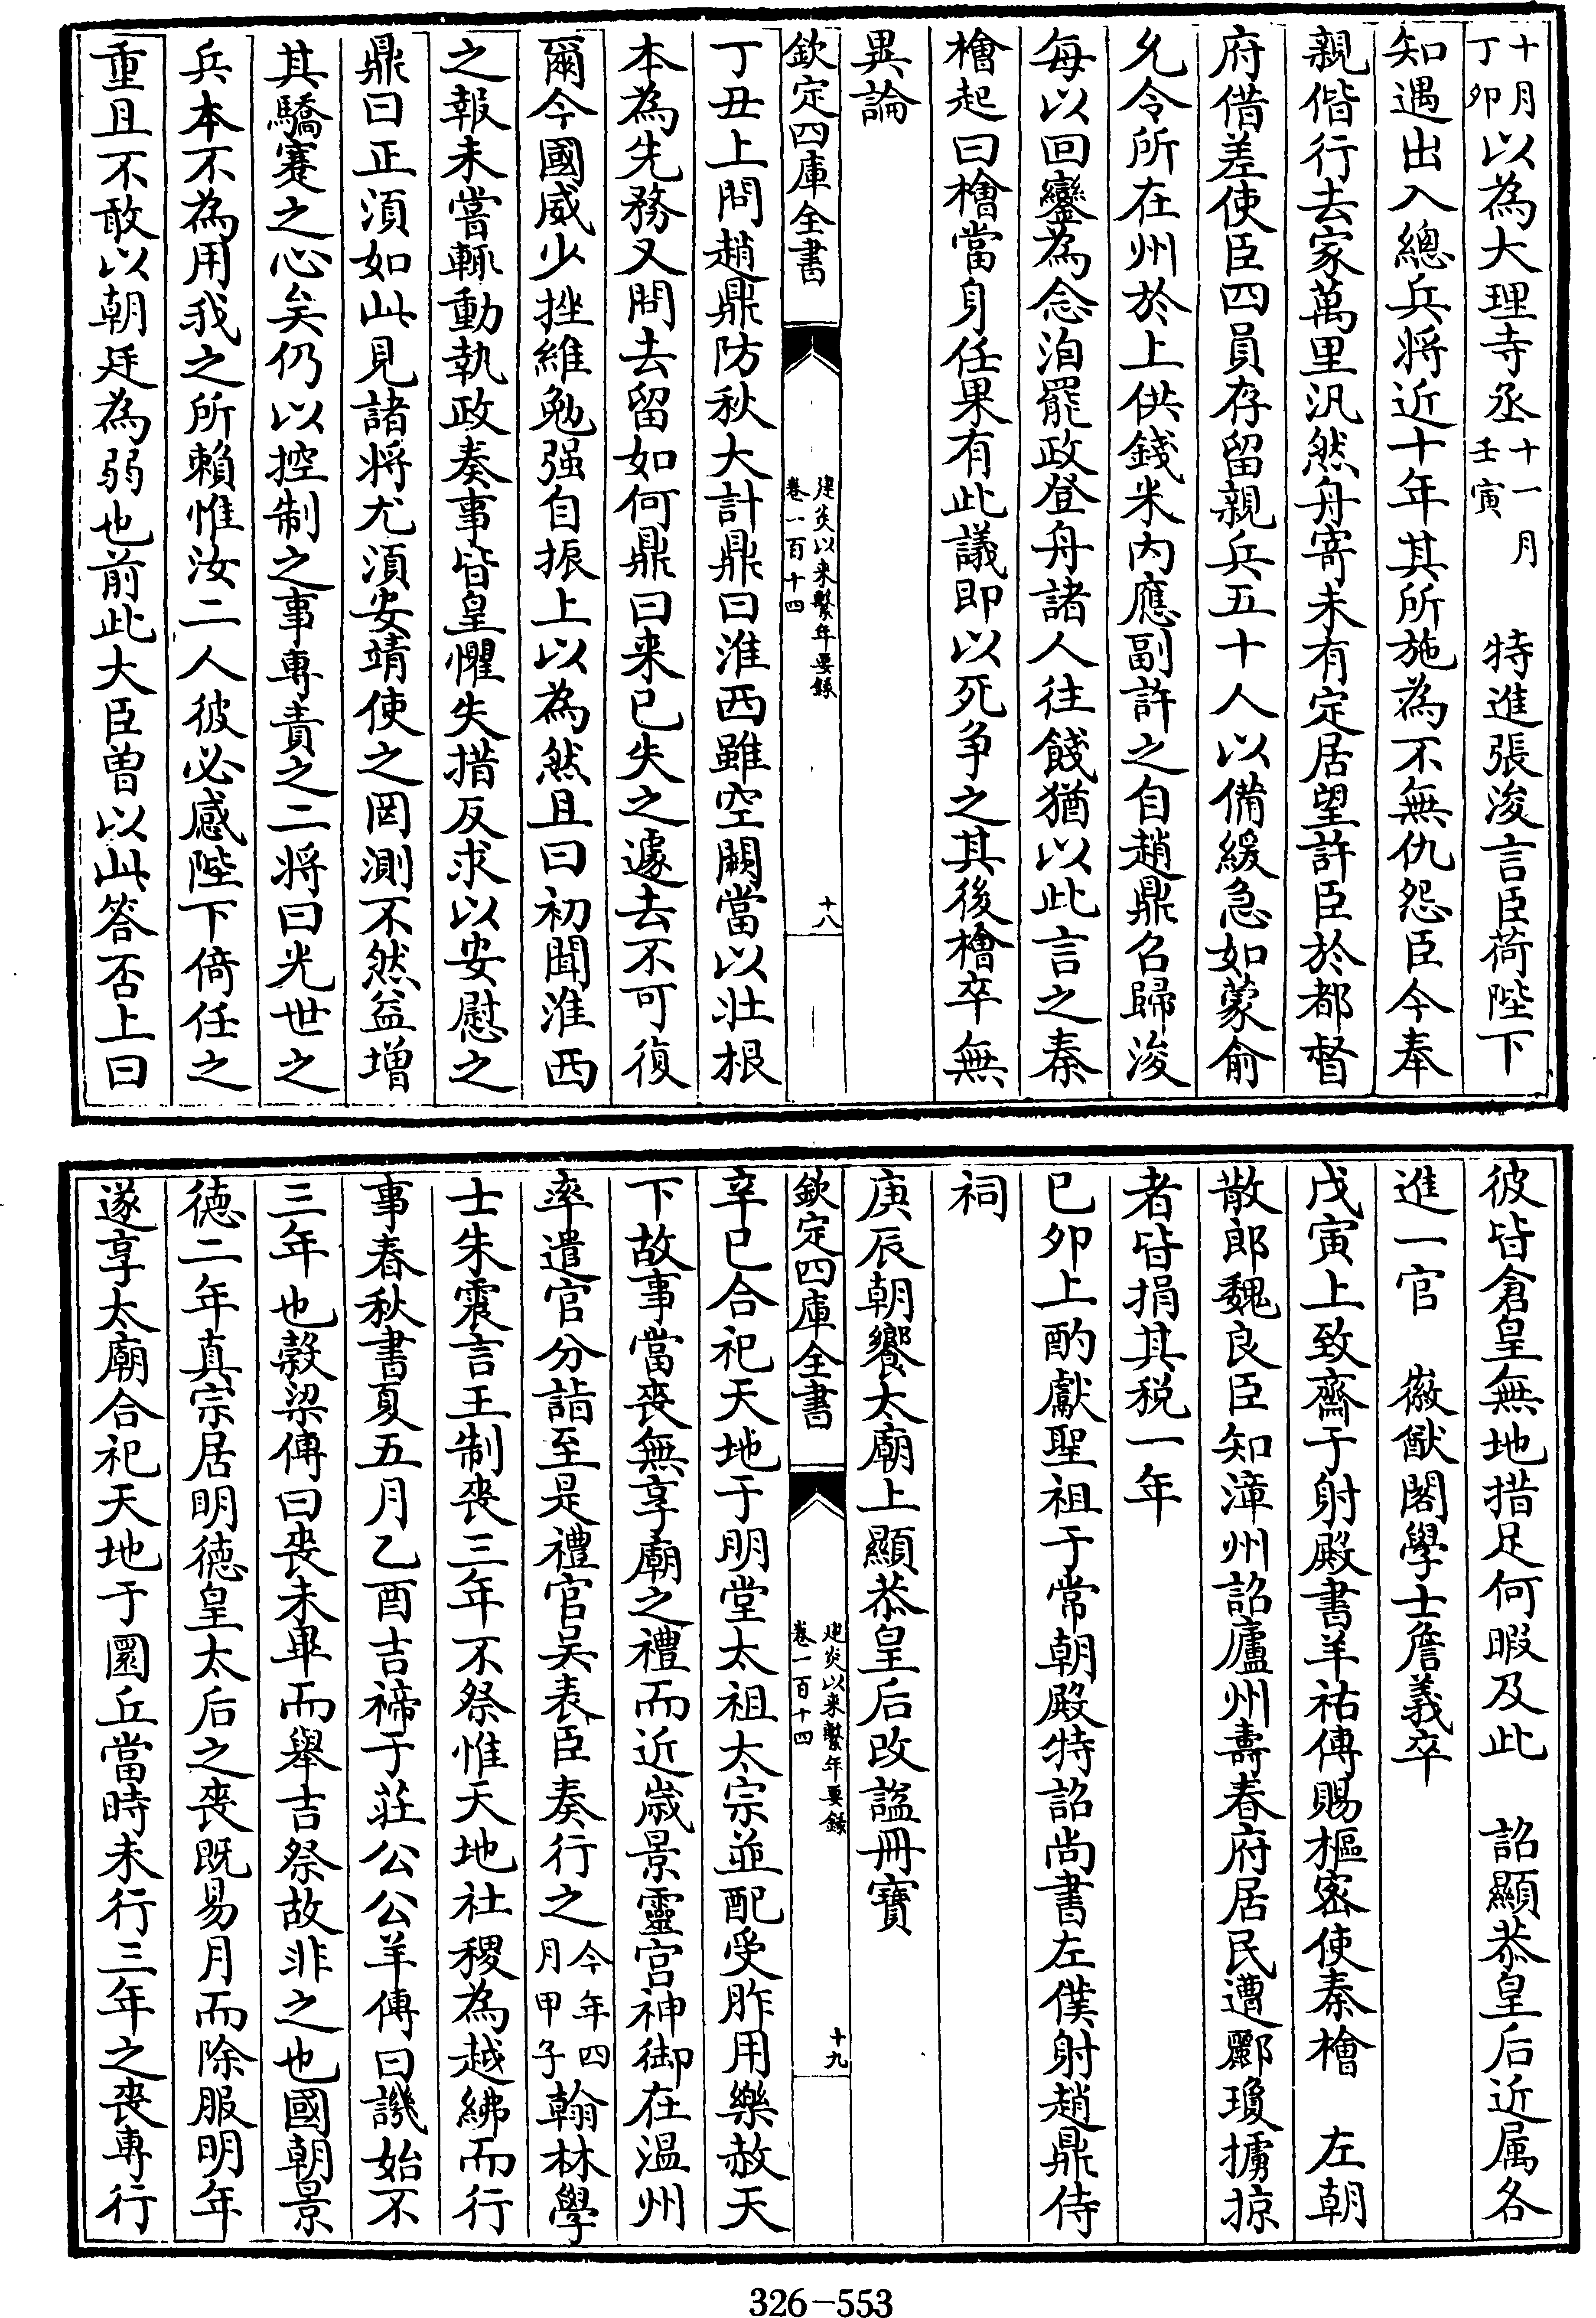 十月丁卯以為大理寺丞十一月壬寅　特進張浚言臣荷陛下
知遇出入總兵將近十年其所施為不無仇怨臣今奉
親偕行去家萬里汎然舟寄未有定居望許臣於都督
府借差使臣四員存留親兵五十人以備緩急如蒙俞
允令所在州於上供錢米内應副許之自趙鼎召歸浚
每以回鑾為念洎罷政登舟諸人往餞猶以此言之秦
檜起曰檜當身任果有此議即以死争之其後檜卒無
異論
欽定四庫全書
建炎以来繫年要錄
卷一百十四
十八
丁丑上問趙鼎防秋大計鼎曰淮西雖空闕當以壯根
本為先務又問去留如何鼎曰来已失之遽去不可復
爾今國威少挫維勉强自振上以為然且曰初聞淮西
之報未嘗輒動執政奏事皆皇懼失措反求以安慰之
鼎曰正須如此見諸將尤須安靖使之罔測不然益增
其驕蹇之心矣仍以控制之事專責之二將曰光世之
兵本不為用我之所賴惟汝二人彼必感陛下倚任之
重且不敢以朝廷為弱也前此大臣曽以此答否上曰
彼皆倉皇無地措足何暇及此　詔顯恭皇后近属各
進一官　徽猷閣學士詹義卒
戊寅上致齋于射殿書羊祜傳賜樞密使秦檜　左朝
散郎魏良臣知漳州詔廬州壽春府居民遭酈瓊擄掠
者皆捐其税一年
己卯上酌獻聖祖于常朝殿特詔尚書左僕射趙鼎侍
祠
庚辰朝饗太廟上顯恭皇后改諡冊寶
欽定四庫全書
建炎以来繫年要錄
卷一百十四
十九
辛巳合祀天地于明堂太祖太宗並配受胙用樂赦天
下故事當喪無享廟之禮而近歲景靈宫神御在温州
率遣官分詣至是禮官吴表臣奏行之今年四月甲子翰林學
士朱震言王制喪三年不祭惟天地社稷為越紼而行
事春秋書夏五月乙酉吉禘于莊公公羊傳曰譏始不
三年也榖梁傳曰喪未畢而舉吉祭故非之也國朝景
德二年真宗居明德皇太后之喪既易月而除服明年
遂享太廟合祀天地于圜丘當時未行三年之喪專行
326-553